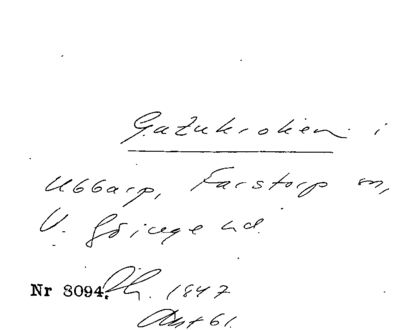 Gatukroken i
Ubbarp, Farstorp sn,
V. Göinge hd.
Nr 8094. Öh. 1847
Ant 61.